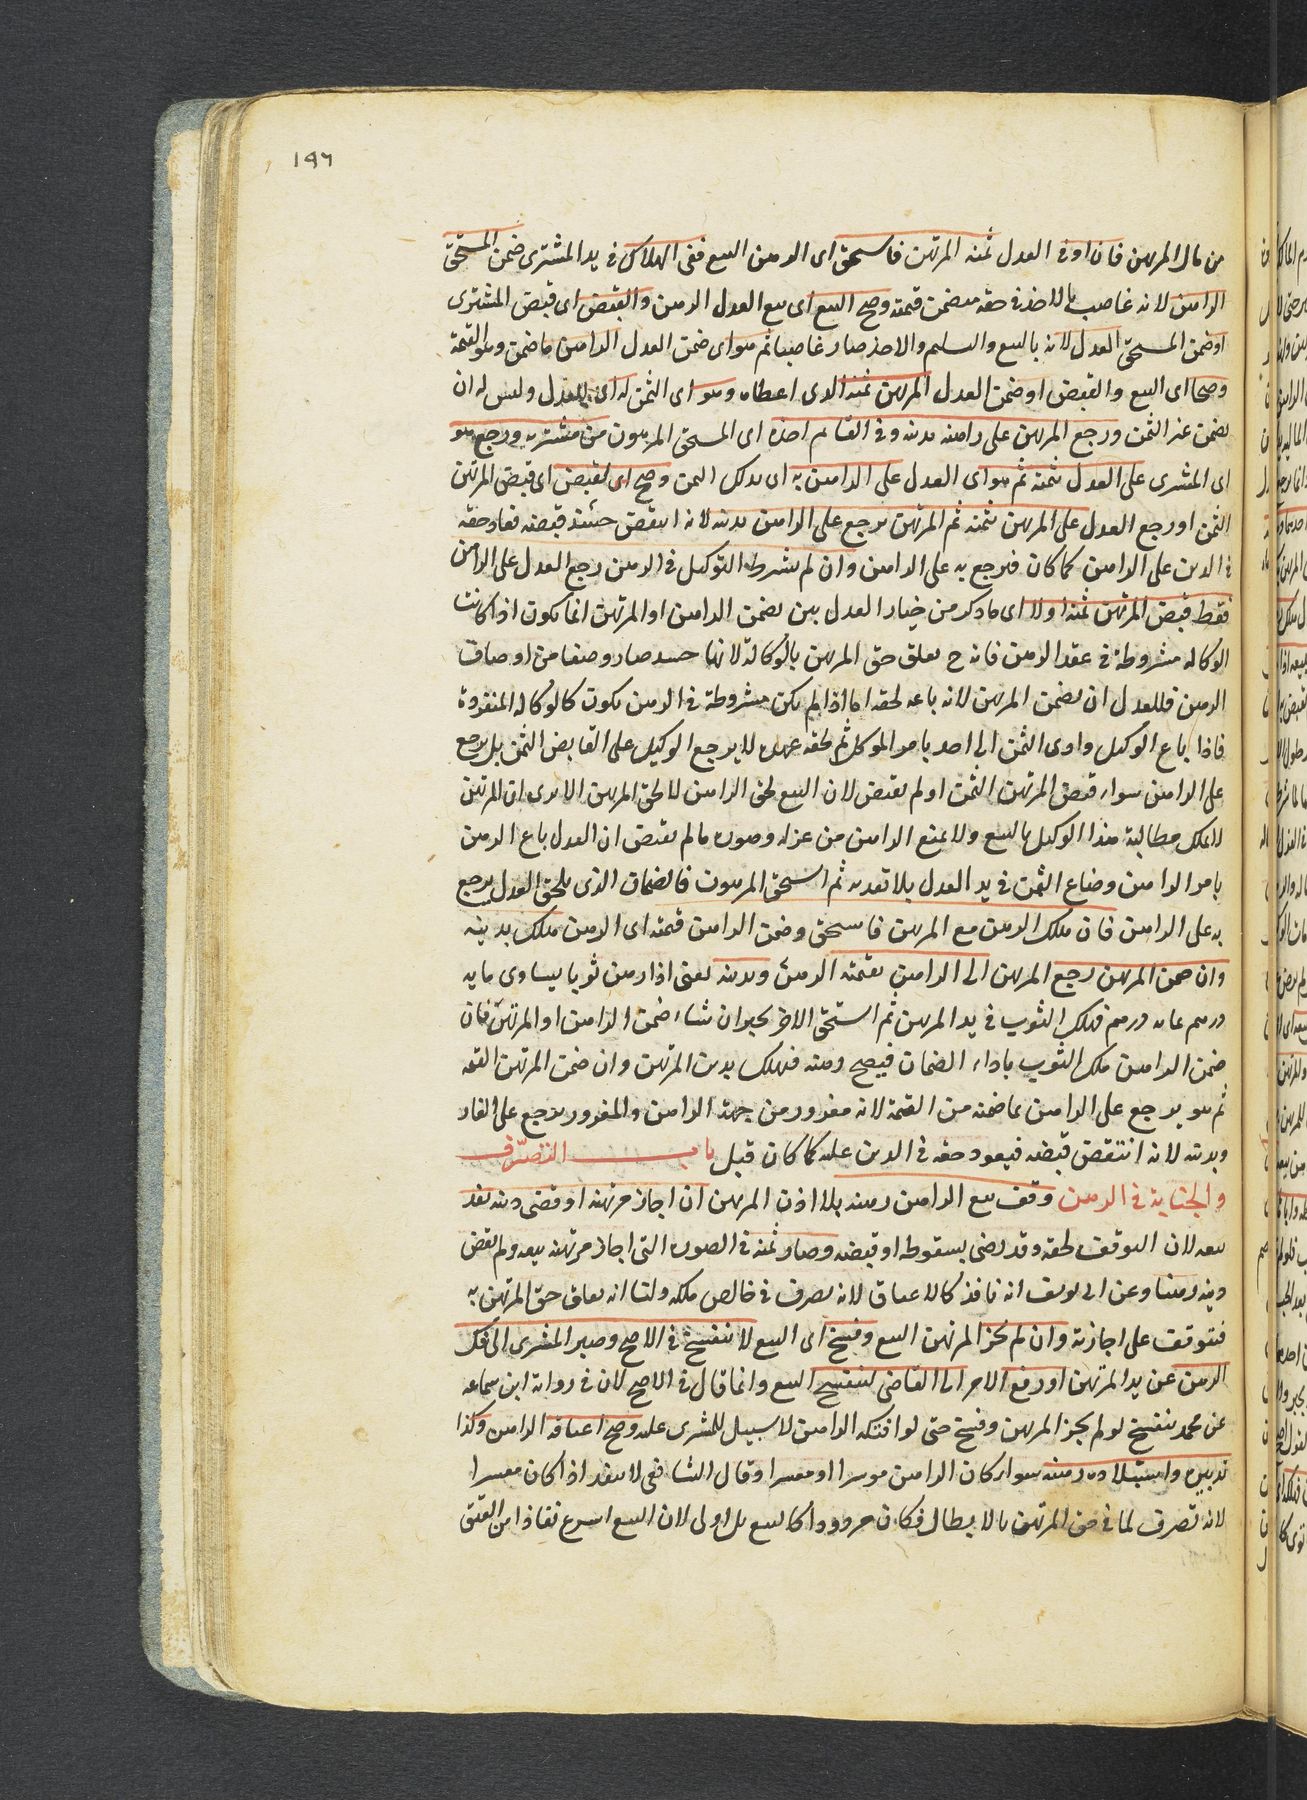 ١٩٦
من مال المرتهن فان اوفى العدل ثمنه المرتهن فاستحق اى الرهن البيع ففى الهلاك فى يد المشترى ضمن المستحق
الراهن لانه غاصب بالاخذ فى حقه فيضمن قيمته وصح البيع اى بيع العدل الرهن والقبض اى قبض المشترى
او ضمن المستحق العدل لانه بالبيع والتسليم والاخذ صار غاصبا ثم هو اى ضمن العدل الراهن ما ضمن وهو القيمة
وصحا اى البيع والقبض او ضمن العدل المرتهن ثمنه الذى اعطاه وهو اى الثمن له اى للعدل وليس له ان
يضمن غير الثمن ورجع المرتهن على راهنه بدينه وفى القائم اخذه اى المستحق المرهون من مشتريه ورجع هو
اى المشترى على العدل بثمنه ثم هو اى العدل على الراهن به اى بذلك الثمن وصح اى القبض اى قبض المرتهن
الثمن او رجع العدل على المرتهن بثمنه ثم المرتهن يرجع على الراهن بدينه لانه انتقض حينئذ قبضه فعاد حقه
فى الدين على الراهن كما كان فيرجع به على الراهن وان لم يشرط التوكيل فى الرهن رجع العدل على الراهن
فقط قبض المرتهن ثمنه اولا اى ما ذكر من خيار العدل بين تضمن الراهن او المرتهن انما يكون اذا كانت
الوكاله مشروطة فى عقد الرهن فانه ح تعلق حق المرتهن بالوكالة لانها حينئذ صار وصفا من اوصاف
الرهن فللعدل ان يضمن المرتهن لانه باعه لحقه اما اذا لم يكن مشروطة فى الرهن يكون كالوكاله المنفردة
فاذا باع الوكيل وادى الثمن الى احد بامر الموكل ثم لحقه عهدة لا يرجع الوكيل على القابض الثمن بل يرجع
على الراهن سواء قبض المرتهن الثمن او لم يقبض لان البيع لحق الراهن لا لحق المرتهن الا يرى ان المرتهن
لا يملك مطالبة هذا الوكيل بالبيع ولا يمنع الراهن من عزله وصورة ما لم يقبض ان العدل باع الرهن
بامر الراهن وضاع الثمن فى يد العدل بلا تعديه ثم استحق المرهون فالضمان الذى يلحق العدل يرجع
به على الراهن فان هلك الرهن مع المرتهن فاستحق وضمن الراهن قيمته اى الرهن هلك بدينه
وان ضمن المرتهن رجع المرتهن الى الراهن بقيمته الرهن وبدينه يعنى اذا رهن ثوبا يساوى مايه
درهم بمايه درهم فهلك الثوب فى يد المرتهن ثم استحق الاخر يخير ان شاء ضمن الراهن او المرتهن فان
ضمن الراهن ملك الثوب باداء الضمان فيصح رهنه فهلك بدين المرتهن وان ضمن المرتهن القيمه
ثم هو يرجع على الراهن بما ضمنه من القيمة لانه مغرور من جهة الراهن والمغرور يرجع على الغار
وبدينه لانه انتقض قبضه فيعود حقه فى الدين عليه كما كان قبل باب التصرف
والجناية فى الرهن وقف بيع الراهن رهنه بلا اذن المرتهن ان اجاز مرتهنه او قضى دينه نفذ
بيعه لان التوقف لحقه وقد رضى بسقوطه او قبضه وصار ثمنه فى الصورة التى اجاز مرتهنه بيعه ولم يقض
دينه رهنا وعن ابى يوسف انه نافذ كالاعتاق لانه تصرف فى خالص ملكه ولنا انه تعلق حق المرتهن به
فتوقف على اجازته وان لم يجز المرتهن البيع وفسخ اى البيع لا ينفسخ فى الاصح وصبر المشترى الى فك
الرهن عن يد المرتهن او رفع الامر الى القاضى لينفسخ البيع وانما قال فى الاصح لان فى رواية ابن سماعه
عن محمد ينفسخ لو لم يجز المرتهن وفسخ حتى لو افتكه الراهن لا سبيل للمشترى عليه وصح اعتاقه الراهن وكذا
تدبيره واستيلاده رهنه سواء كان الراهن موسرا او معسرا وقال الشافعى لا ينفذ اذا كان معسرا
لانه تصرف لما فى حق المرتهن بالابطال فكان مردودا كالبيع بل اولى لان البيع اسرع نفاذا من العتق